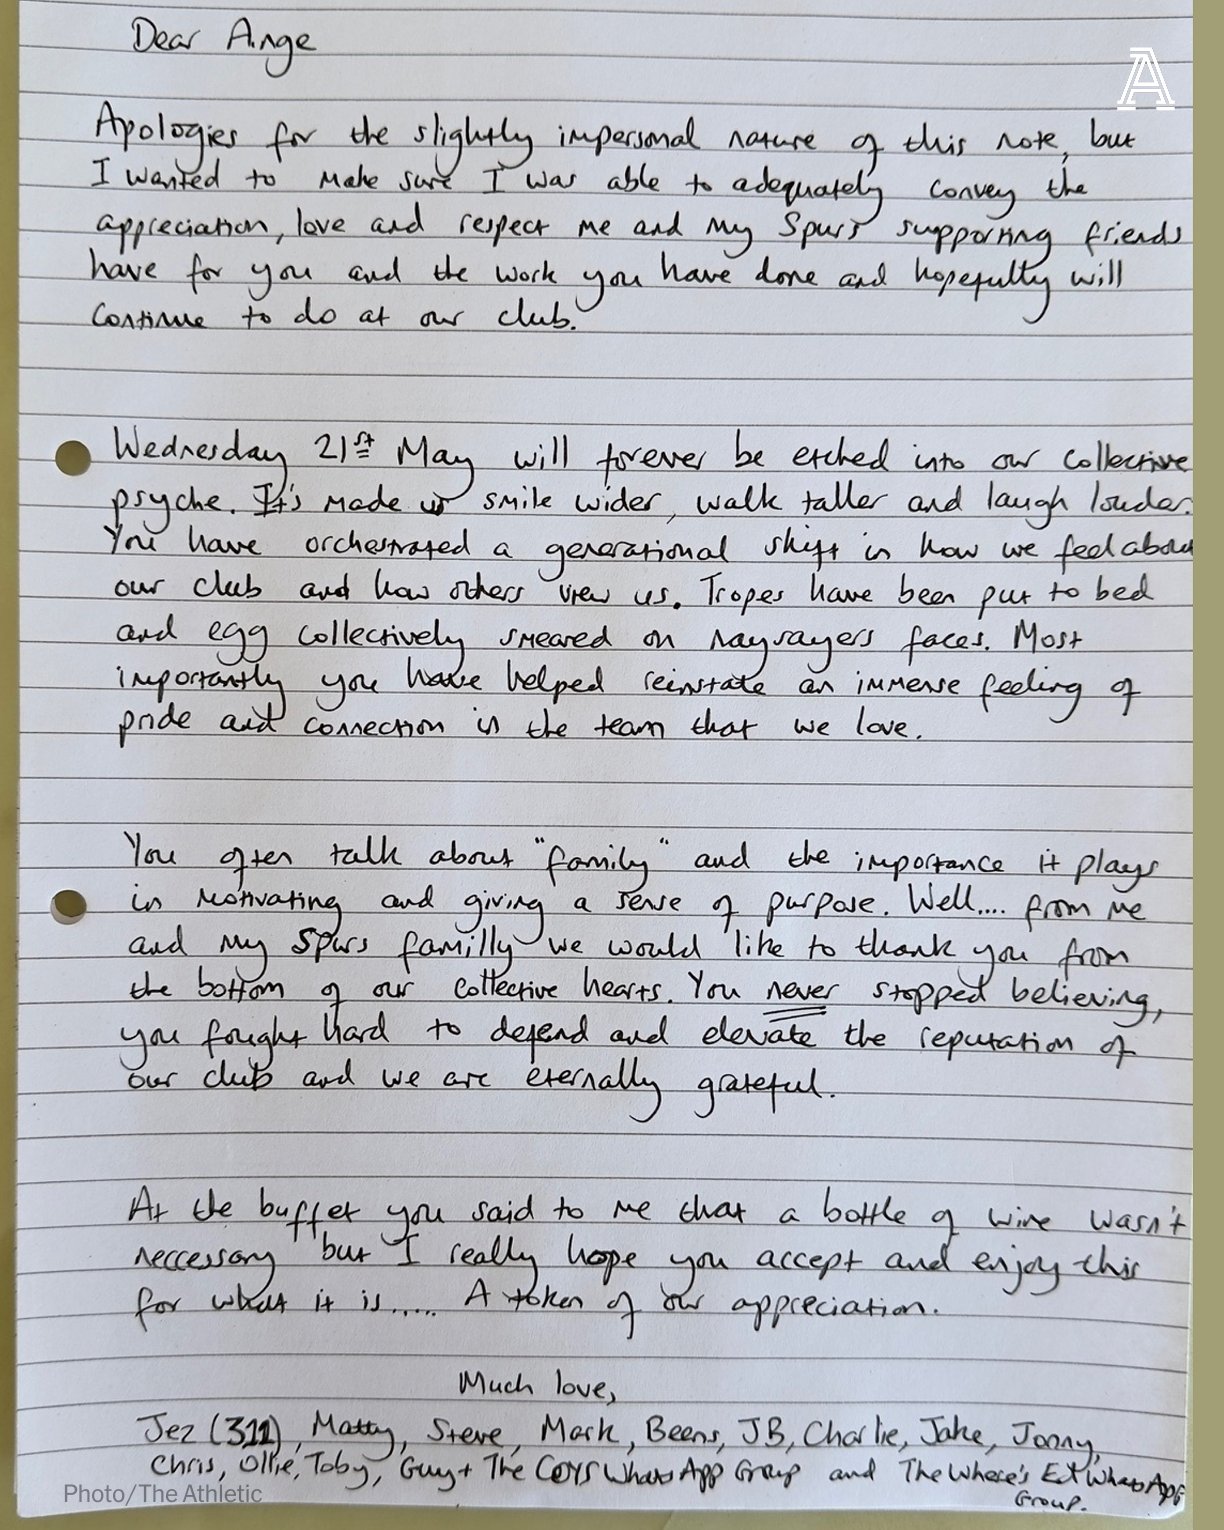 Dear Ange
Apologies for the slightly impersonal nature of this note, but
I wanted to make sure I was able to adequately convey the
appreciation, love and respect me and my Spurs supporting friends
have for you and the work you have done and hopefully will
continue to do at our club.
Wednesday 21st May will forever be etched into our collective
psyche. It's made us smile wider, walk taller and laugh louder.
You have orchestrated a generational shift in how we feel about
our club and how others view us. Tropes have been put to bed
and egg collectively smeared on naysayers faces. Most
importantly you have helped reinstate an immense feeling of
pride and connection in the team that we love.
You often talk about "family" and the importance it plays
in motivating and giving a sense of purpose. Well.... from me
and my Spurs familly we would like to thank you from
the bottom of our collective hearts. You never stopped believing,
you fought hard to defend and elevate the reputation of
our club and we are eternally grateful.
At the buffet you said to me that a bottle of wine wasn't
neccessary but I really hope you accept and enjoy this
for what it is..... A token of our appreciation.
Much love,
Jez (311), Matty, Steve, Mark, Beens, JB, Charlie, Jake, Jonny,
Chris, Ollie, Toby, Guy + The COYS WhatsApp Group and The Where's Ext WhatsApp
Group.
Photo/The Athletic
A